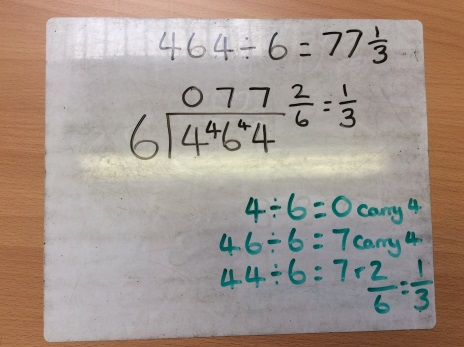 464÷6=77 1/3
077 2/6=1/3
6 4⁴6⁴4
4÷6=0 carry 4
46÷6=7 carry 4
44÷6=7 r 2/6=1/3